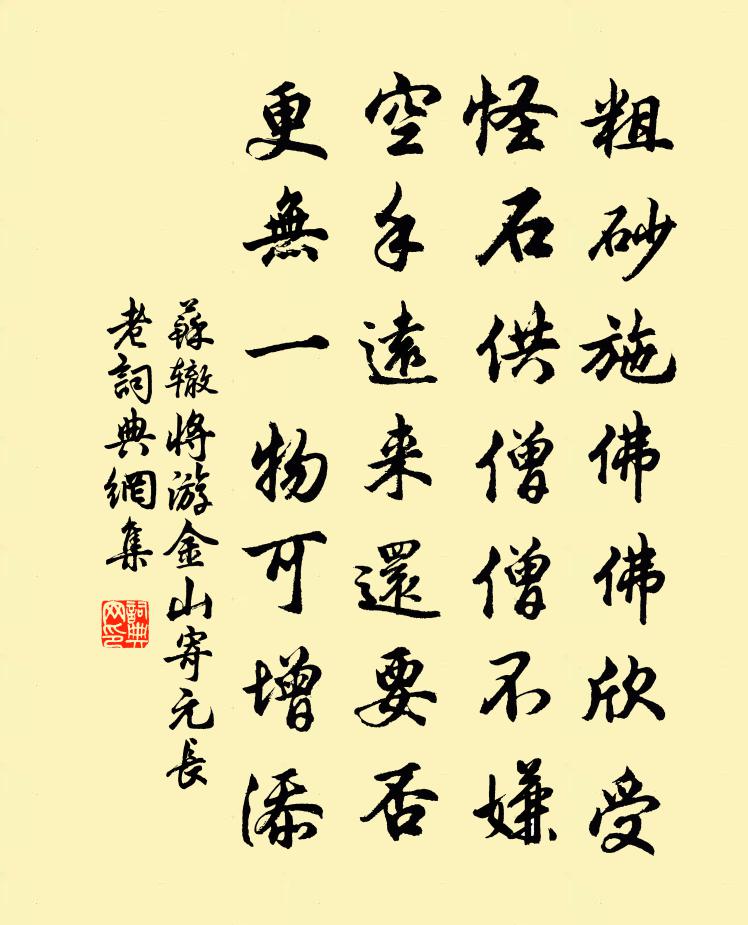 粗砂施佛佛欣受
怪石供僧僧不嫌
空手遠来還要否
更無一物可增添
蘇辙将游金山寄元長
老詞典網集
詞典
网印